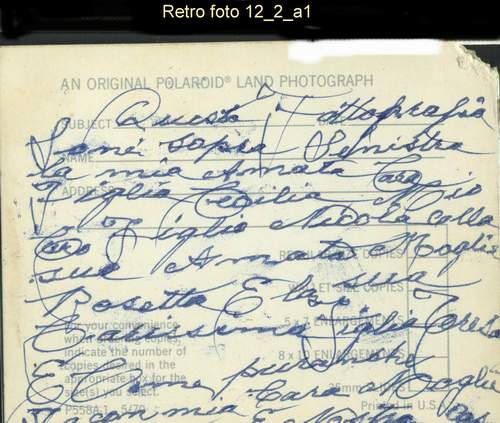 Retro foto 12_2_a1
AN ORIGINAL POLAROID® LAND PHOTOGRAPH
SUBJECT Questa Fottografia
sopra Senistra
NAME la mia Amata Cara
ADDRESS Figlia Cecilia Mio
Caro Figlio Nicola colla
sua Amata Moglie
REGULAR SIZE COPIES
WALLET SIZE COPIES
Rosetta E la sua
5 x 7 ENLARGEMENTS
Carissima Figlia Teresa
For your convenience
when ordering copies,
indicate the number of
copies desired in the
appropriate box for the
size(s) you select.
8 x 10 ENLARGEMENTS
E purche
35mm
Cara Moglie
P558A-1 5/70
Printed in U.S.A.
con mia E Nostra